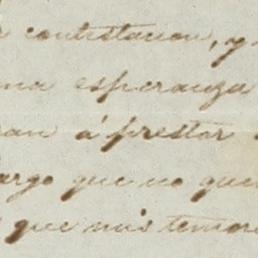 contestacion, y
na esperanza
an á prestar
argo que no que
que mis temor